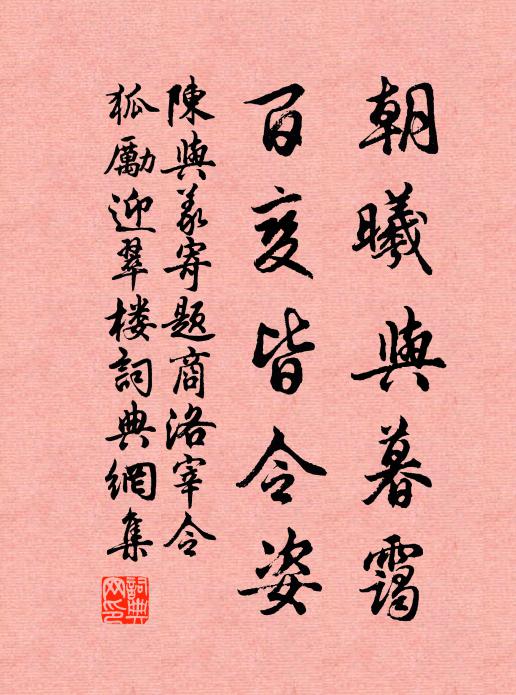 朝曦與暮靄
百変皆令姿
陳與義寄題商洛宰令
狐勵迎翠楼詞典網集